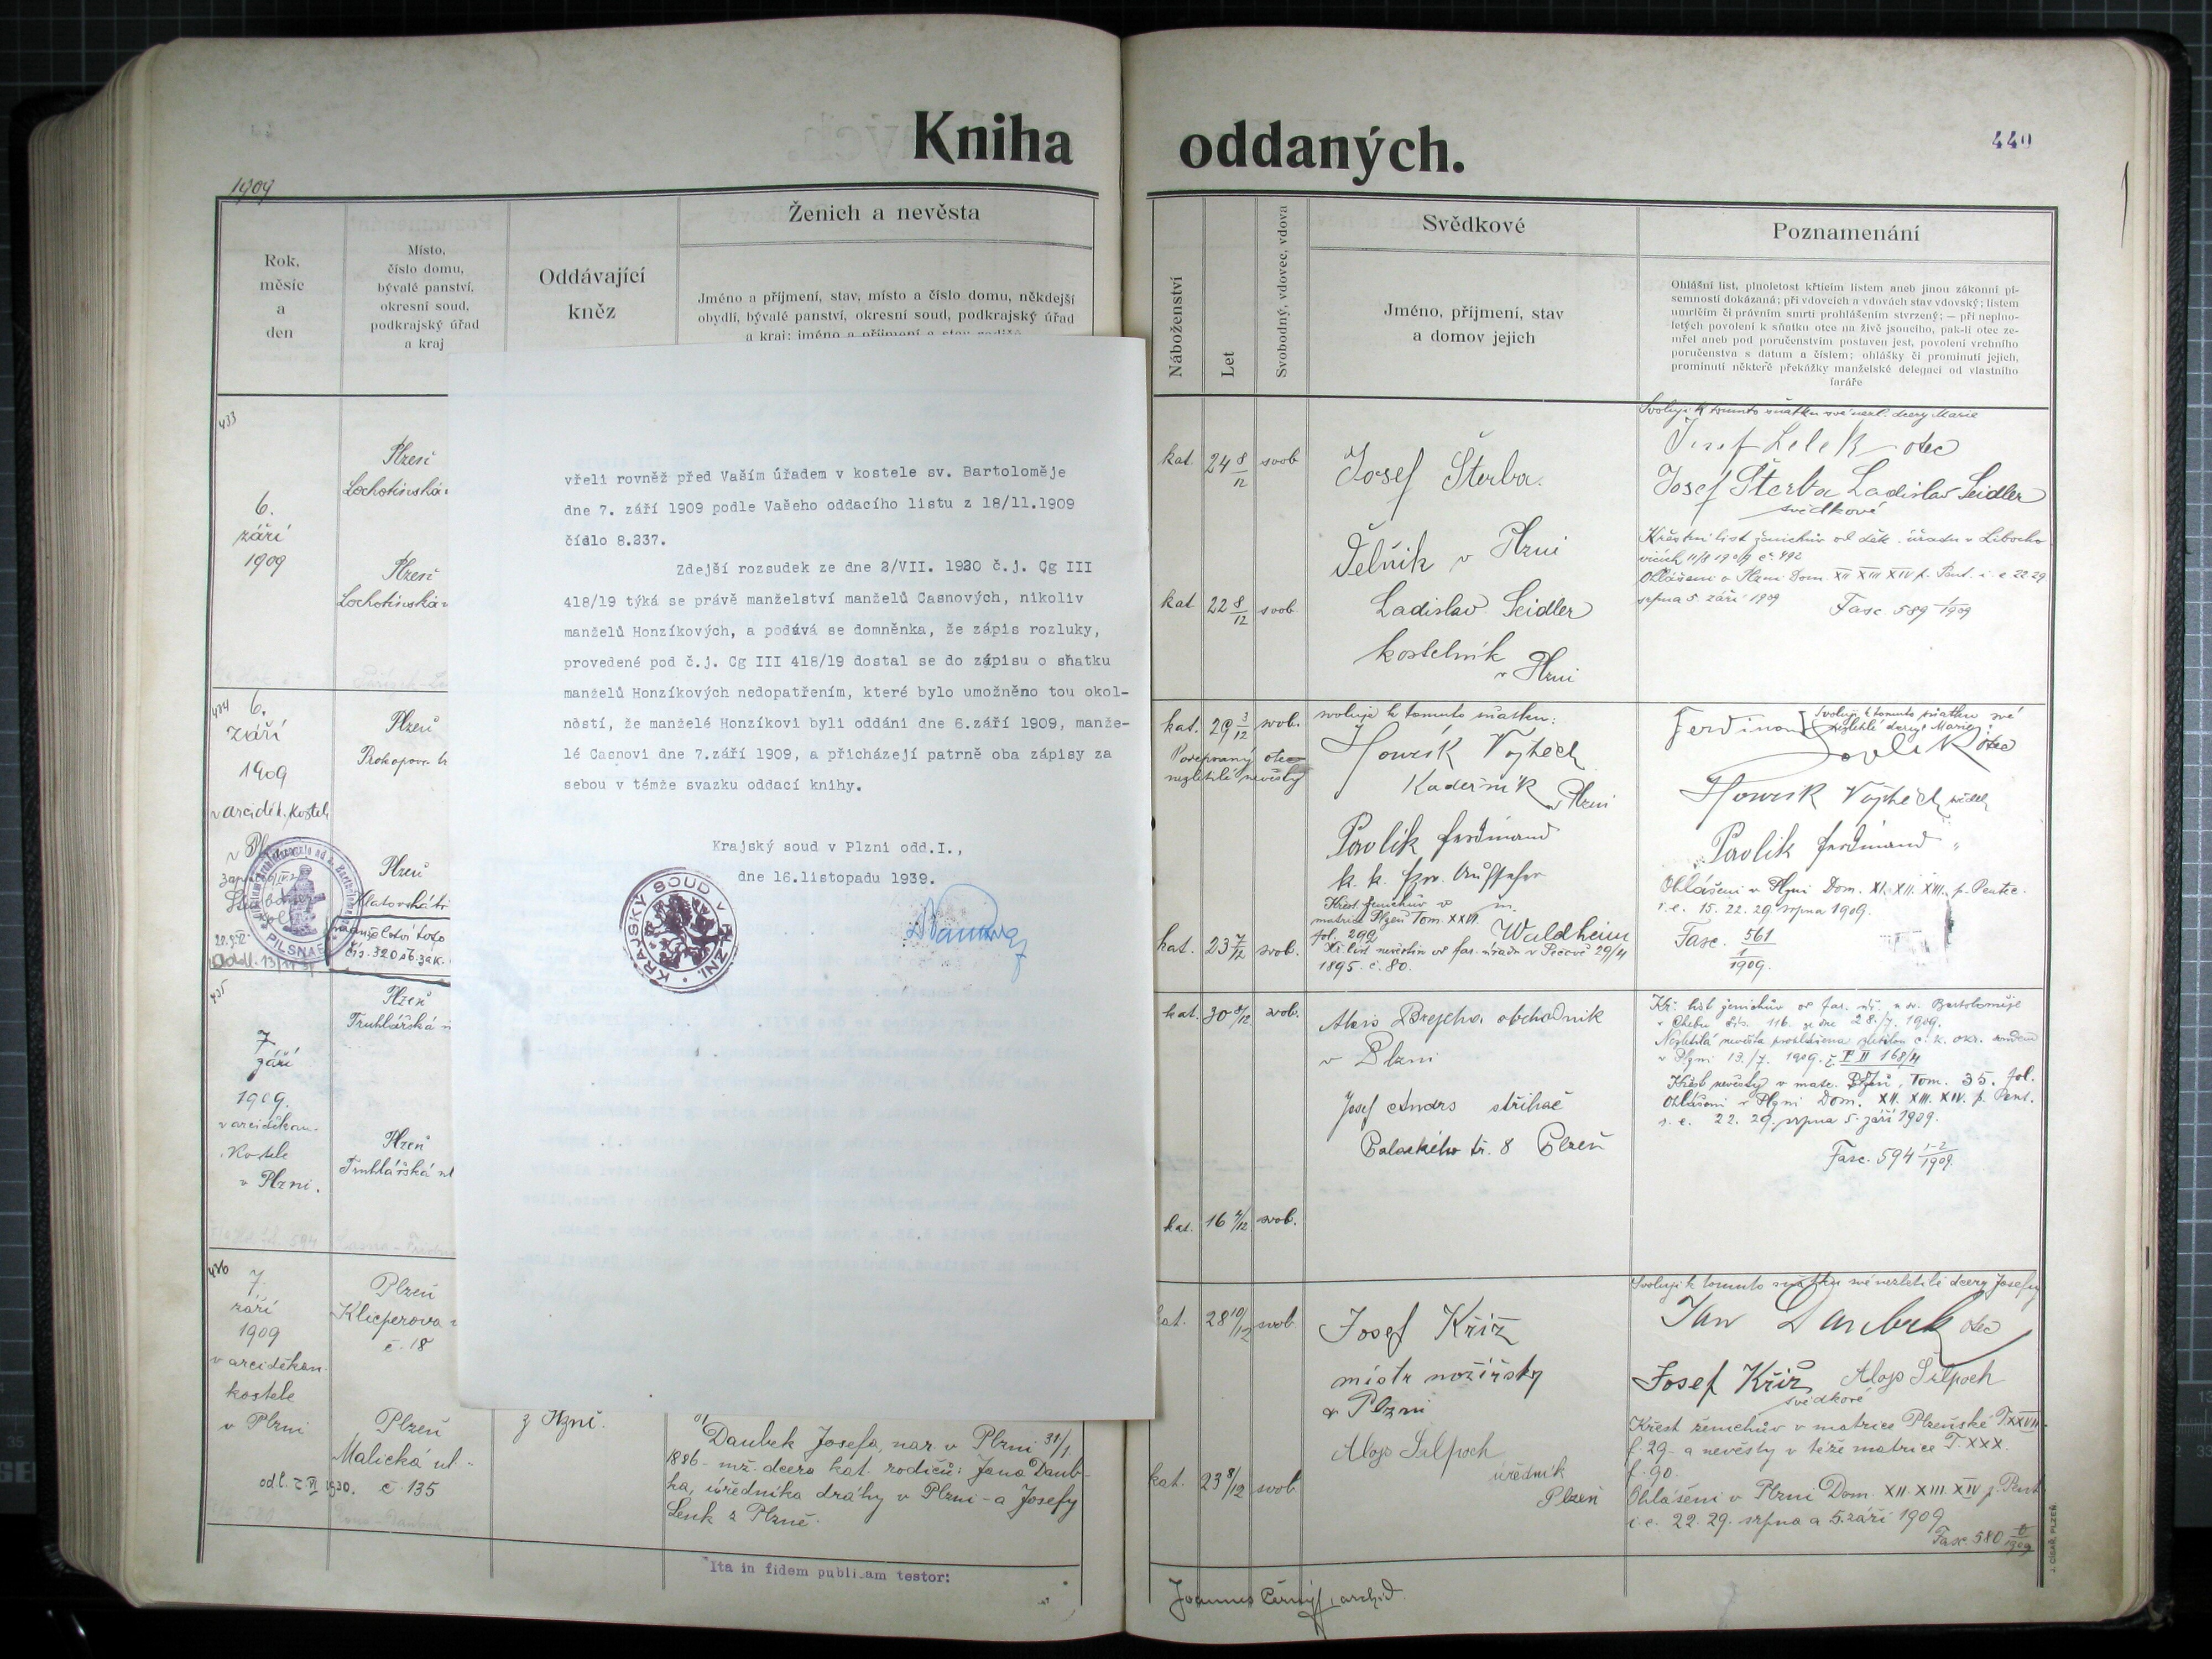 Kniha oddaných.
440
1909
Rok,
měsíc
a
den
Místo,
číslo domu,
bývalé panství,
okresní soud,
podkrajský úřad
a kraj
Oddávající
kněz
Ženich a nevěsta
Jméno a příjmení, stav, místo a číslo domu, někdejší
obydlí, bývalé panství, okresní soud, podkrajský úřad
a kraj; jméno a příjmení a stav rodičů
Náboženství
Let
Svobodný, vdovec, vdova
Svědkové
Jméno, příjmení, stav
a domov jejich
Poznamenání
Ohlášní list, plnoletost křticím listem aneb jinou zákonní pí-
semností dokázaná; při vdovcích a vdovách stav vdovský; listem
umrlčím či právním smrti prohlášením stvrzený; — při neplno-
letých povolení k sňatku otce na živě jsoucího, pak-li otec ze-
mřel aneb pod poručenstvím postaven jest, povolení vrchního
poručenstva s datum a číslem; ohlášky či prominutí jejich,
prominutí některé překážky manželské delegací od vlastního
faráře
433
6.
září
1909
Plzeň
Lochotínská
Plzeň
Lochotínská
434
6.
září
1909
v arciděk. kostele
Plzeň
Prokopov.
Plzeň
Klatovská tř
PILSNAE
manželství toto
čís. 320 sb. zák.
435
7.
září
1909.
v arciděkan.
kostele
v Plzni.
Plzeň
Truhlářská
Plzeň
Truhlářská ul
436
7.
září
1909
v arciděkan.
kostele
v Plzni
Plzeň
Klicperova
č. 18
Plzeň
Malická ul.
č. 135
z Plzně.
Daubek Josefa, nar. v Plzni 31/1
1886 - mž. dcera kat. rodičů: Jana Daub-
ka, úředníka dráhy v Plzni - a Josefy
Lenk z Plzně.
Ita in fidem publicam testor:
vřeli rovněž před Vaším úřadem v kostele sv. Bartoloměje
dne 7. září 1909 podle Vašeho oddacího listu z 18/11.1909
číslo 8.237.
Zdejší rozsudek ze dne 2/VII. 1920 č.j. Cg III
418/19 týká se právě manželství manželů Casnových, nikoliv
manželů Honzíkových, a podává se domněnka, že zápis rozluky,
provedené pod č.j. Cg III 418/19 dostal se do zápisu o sňatku
manželů Honzíkových nedopatřením, které bylo umožněno tou okol-
ností, že manželé Honzíkovi byli oddáni dne 6.září 1909, manže-
lé Casnovi dne 7.září 1909, a přicházejí patrně oba zápisy za
sebou v témže svazku oddací knihy.
Krajský soud v Plzni odd.I.,
dne 16.listopadu 1939.
KRAJSKÝ SOUD V PLZNI.
kat. 24 8/12 svob
kat 22 8/12 svob.
Josef Šterba.
Dělník v Plzni
Ladislav Seidler
kostelník
v Plzni
Svoluji k tomuto sňatku své nezl. dcery Marie
Josef Lelek otec
Josef Šterba Ladislav Seidler
svědkové
Křestní list ženichův od děk. úřadu v Libocho-
vicích 11/8 1909 č. 492
Ohlášeni v Plzni Dom. XII XIII XIV p. Pent. i. e 22 29
srpna 5. září 1909 Fasc. 589 1/1909
kat. 29 3/12 svob.
Podepsaný otec
nezletilé nevěsty
kat. 23 7/12 svob.
svoluje k tomuto sňatku:
Honzík Vojtěch
Kadeřník v Plzni
Pavlik ferdinand
Křest ženichův v
matrice Plzeň Tom. XXVI.
fol. 299.
Waldheim
Kř. list nevěstin od far. úřadu v Pečově 29/4
1895. č. 80.
Ferdinand
Svoluji k tomuto sňatku své
nezletilé dcery Marie:
Pavlik otec
Honzík Vojtěch svědek
Pavlik ferdinand "
Ohlášeni v Plzni Dom. XI. XII. XIII. p. Pentec.
i. e. 15. 22. 29. srpna 1909.
Fasc. 561
1/1909.
kat. 30 8/12 svob.
kat. 16 4/12 svob.
Alois Brejcha obchodník
v Plzni
Josef Andrs střihač
Palackého tř. 8 Plzeň
Kř. list ženichův od far. úř. u sv. Bartoloměje
v Chebu čís. 116. ze dne 28./7. 1909.
Nezletilá nevěsta prohlášena zletilou c. k. okr. soudem
v Plzni 13./7. 1909. č. P II 168/4
Křest nevěsty v matr. Plzeň, Tom. 35. fol.
Ohlášeni v Plzni Dom. XII. XIII. XIV. p. Pent.
i. e. 22. 29. srpna 5. září 1909.
Fasc. 594 1-2/1909.
kat. 28 10/12 svob
kat. 23 8/12 svob
Josef Kříž
mistr nožířský
v Plzni
Alojs Šilpoch
úředník
Plzeň
Svoluji k tomuto sňatku své nezletilé dcery Josefy
Jan Daubek otec
Josef Kříž Alojs Šilpoch
svědkové
Křest ženichův v matrice Plzeňské T. XXVII.
f. 29 - a nevěsty v téže matrice T. XXX.
f. 90.
Ohlášeni v Plzni Dom. XII. XIII. XIV p. Pent
i. e. 22. 29. srpna a 5. září 1909
Fasc. 580
Joannes Černý, archid.
J. CÍSAŘ, PLZEŇ.